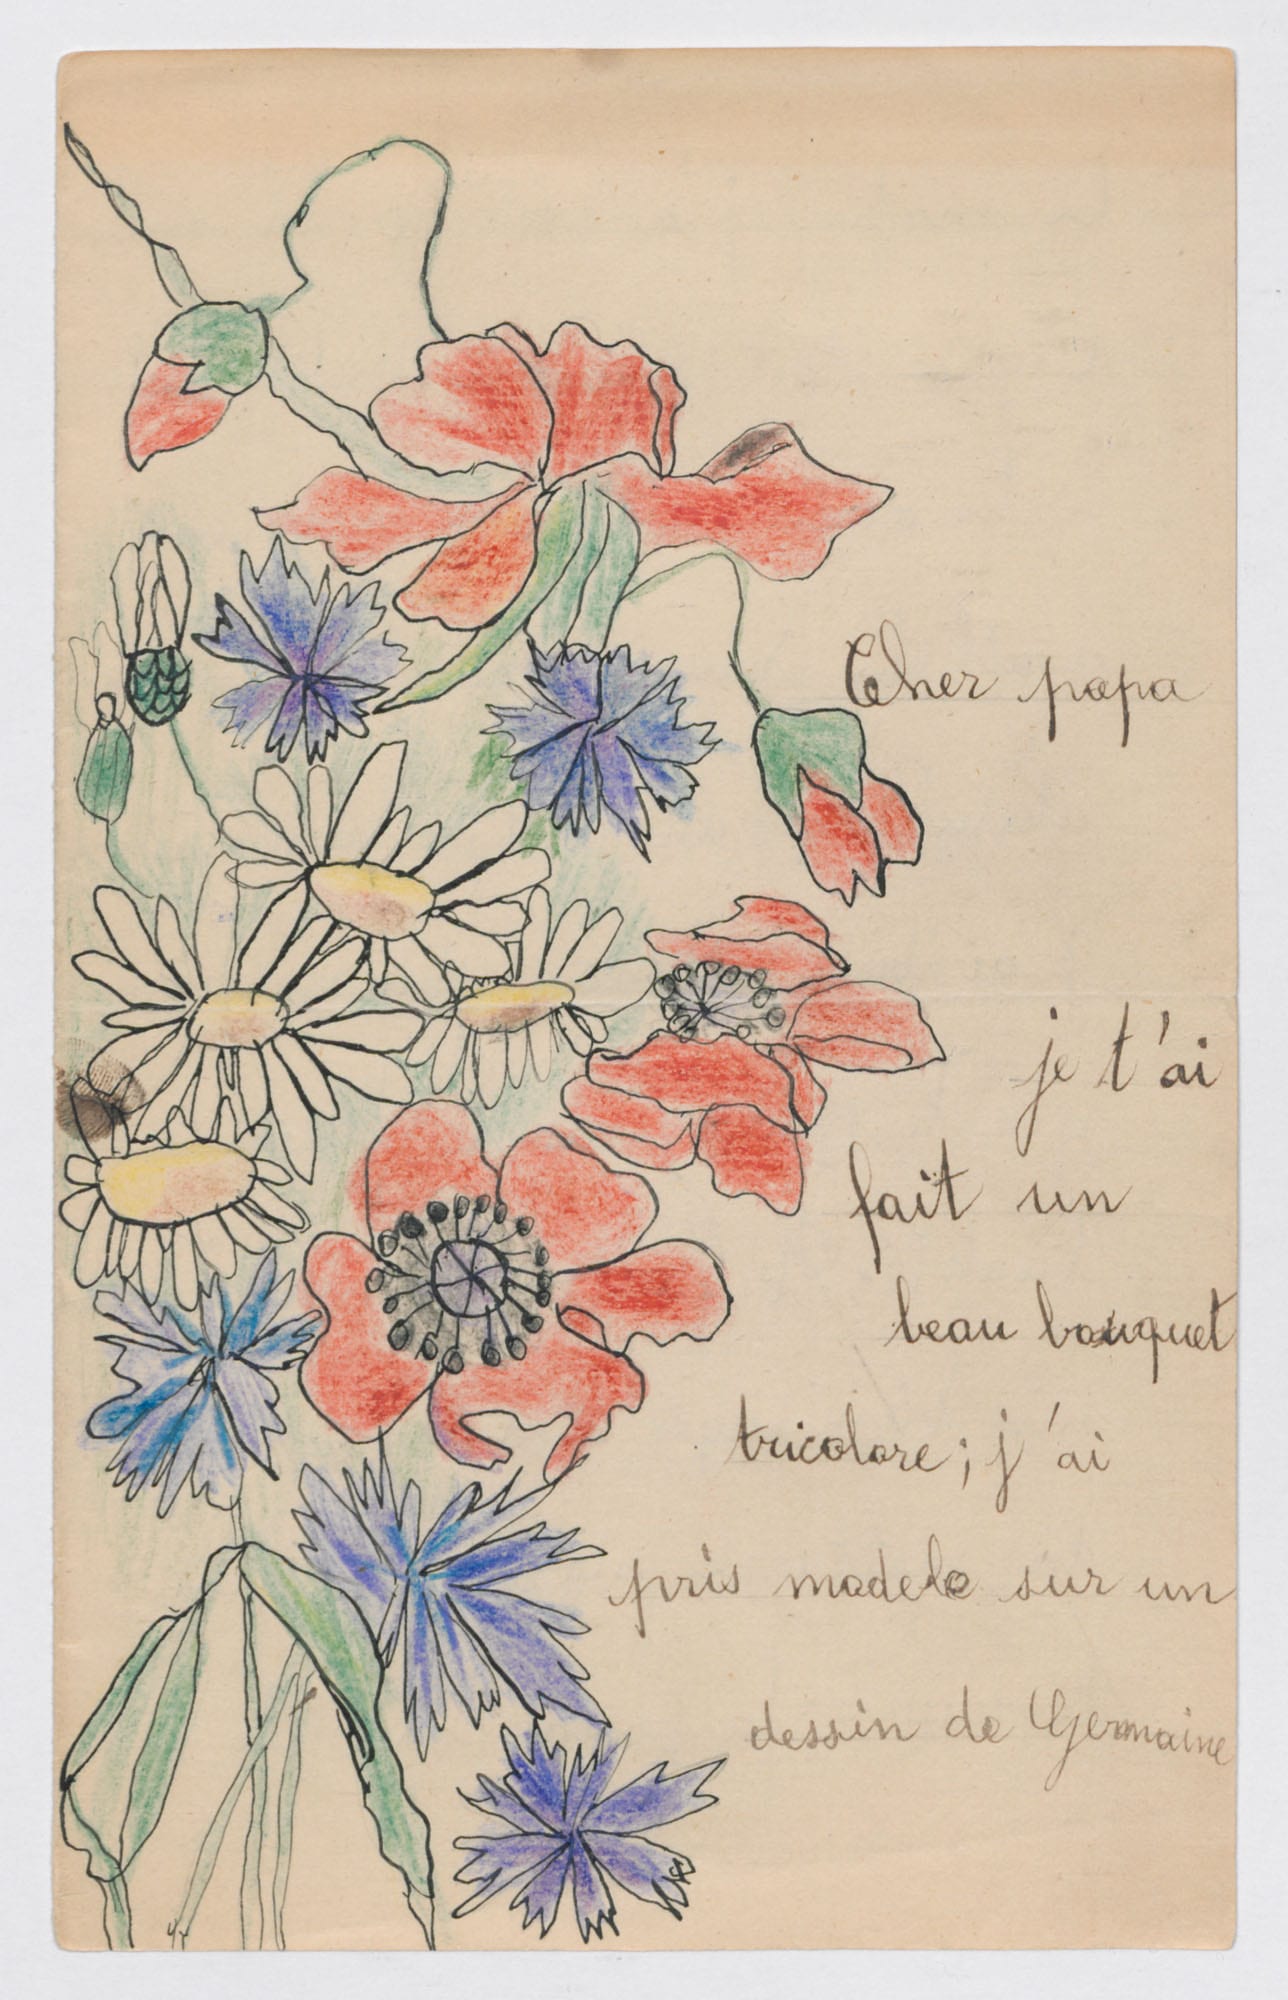 Cher papa
je t'ai
fait un
beau bouquet
tricolore; j'ai
pris modele sur un
dessin de Germaine